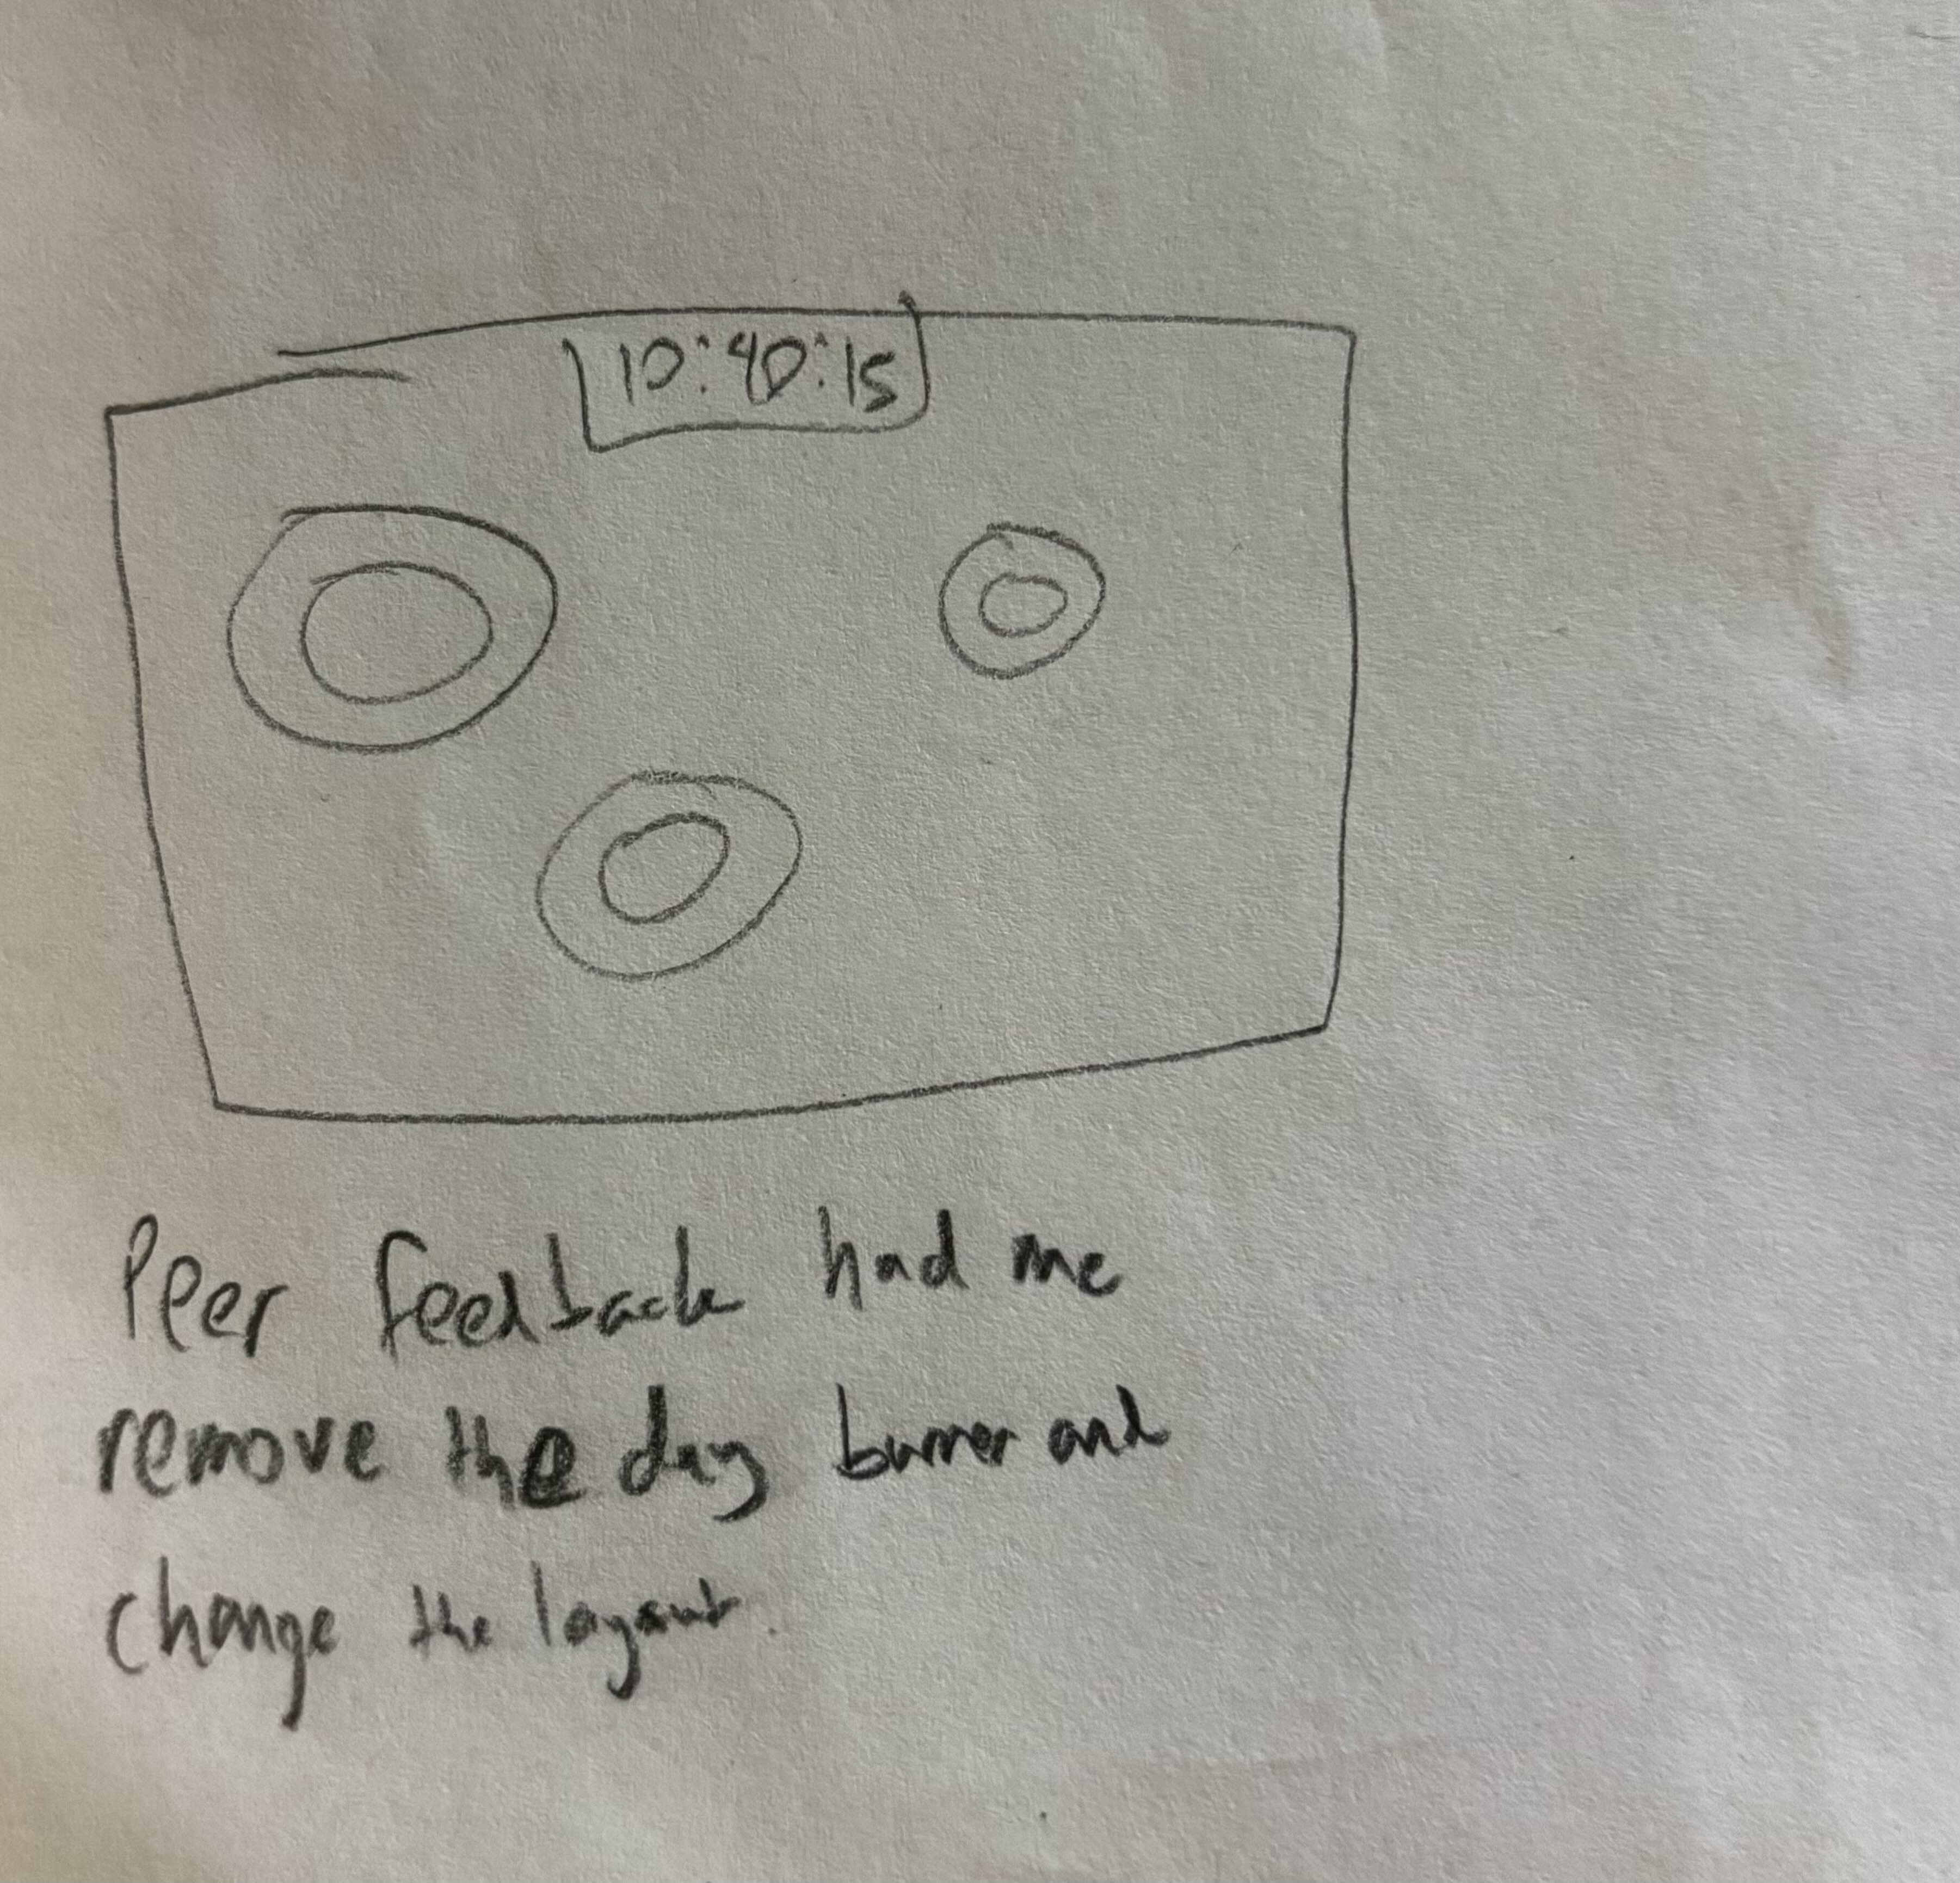 10:40:15
Peer feedback had me
remove the day burner and
change the layout.